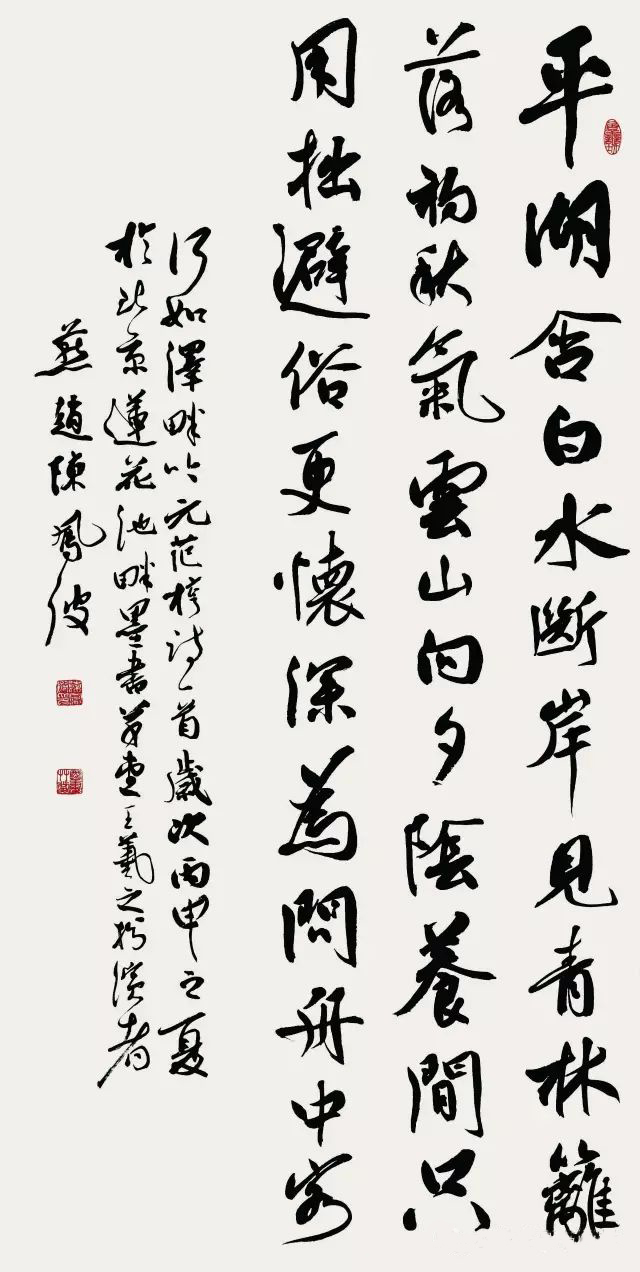 平湖含白水斷岸見青林籬
落初秋氣雲山向夕陰養閒只
用拙避俗更懷深為問舟中客
何如澤畔吟元范梈詩一首歲次丙申之夏
於北京蓮花池畔墨書王羲之者
燕趙陳鳳波